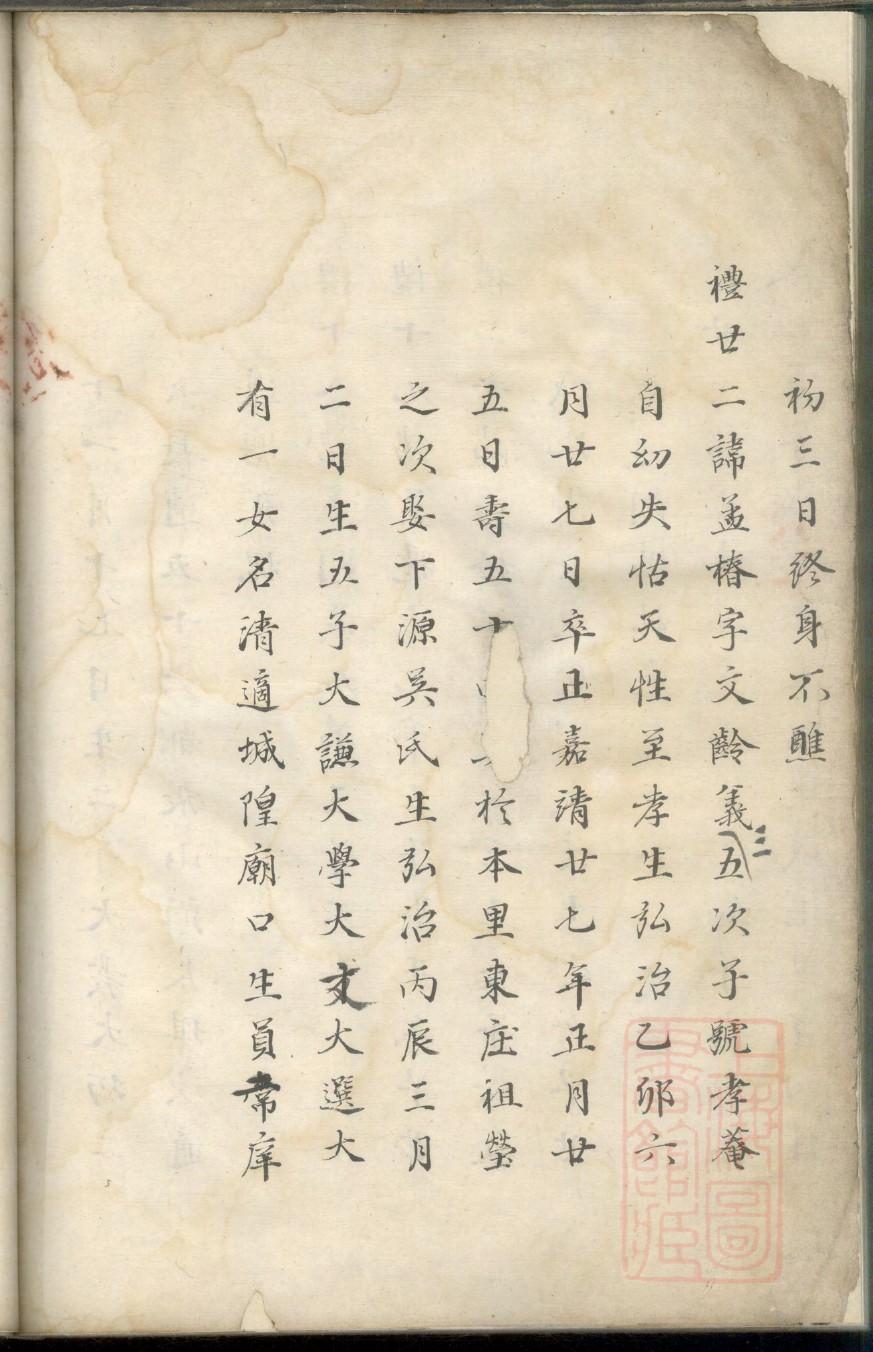 初三日終身不醮
禮廿二諱孟椿字文齡義五三次子號孝菴
自幼失怙天性至孝生弘治乙卯六
月廿七日卒正嘉靖廿七年正月廿
五日壽五十於本里東庄祖塋
之次娶下源吳氏生弘治丙辰三月
二日生五子大謙大學大文大選大
有一女名清適城隍廟口生員常庠
上海圖書館藏